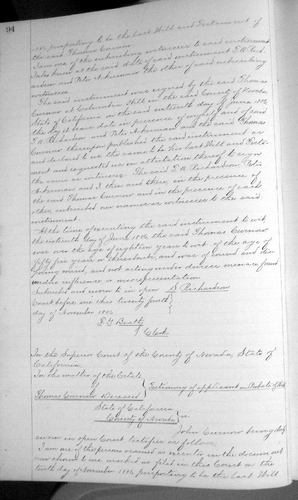 94
1902 purporting to be the last Will and Testament of
the said Thomas Curnow
I am one of the subscribing witnesses to said instrument
dated at the said date of said instrument
and Peter Ackerman the other of said subscribing
witnesses
The said instrument was signed by the said Thomas
Curnow at Columbia Hill in the said County of Nevada
State of California on the said sixteenth day of June 1902
the day it bears date in presence of myself and of said
Richardson and Peter Ackerman and the said Thomas
Curnow thereupon published the said instrument as
and declared to us the same to be his last Will and Testa-
ment and requested us in attestation thereof to sign
the same as witnesses. The said Richardson Peter
Ackerman and I then and there in the presence of
the said Thomas Curnow and in the presence of each
other subscribed our names as witnesses to the said
instrument.
At the time of executing the said instrument to wit
the sixteenth day of June 1902 the said Thomas Curnow
was over the age of eighteen years to wit of the age of
fifty five years or thereabouts and was of sound and dis-
posing mind, and not acting under duress menace fraud
undue influence or misrepresentation
Subscribed and sworn to in open Richardson
Court before me this twenty fourth
day of November 1902
Clerk
In the Superior Court of the County of Nevada, State of
California.
In the matter of the Estate
of Testimony of applicant on Probate of Will
Thomas Curnow Deceased
State of California
County of Nevada ss
John Curnow being duly
sworn in open Court testifies as follows:
I am one of the persons named as in the document
now shown to me marked as filed in this Court on the
tenth day of November 1902 purporting to be the last Will